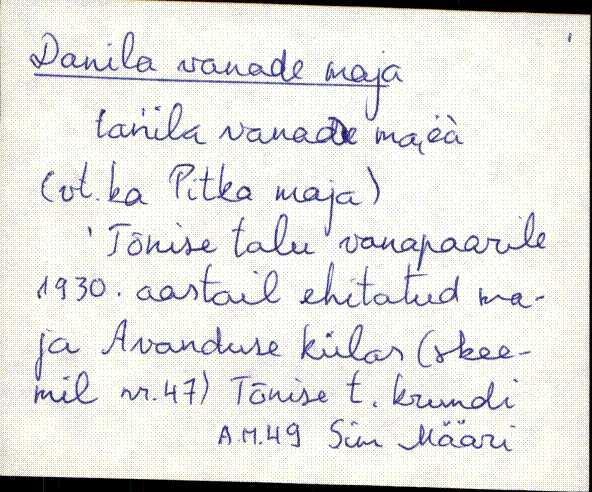 Danila vanade maja
tańila vanaDe mai̯ɛ̀à
(vt. ka Pitka maja)
' Tõnise talu vanapaarile
1930. aastail ehitatud ma-
ja Avanduse külas (skee-
mil nr. 47) Tõnise t. krundi
A.M.49 Sim Määri